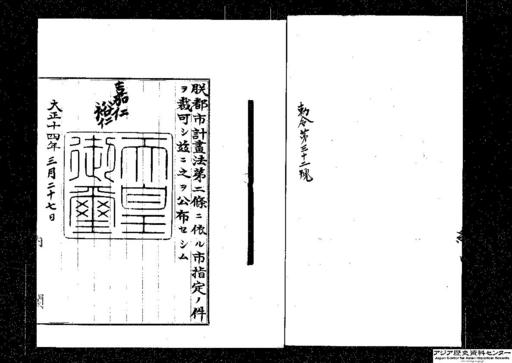 勅令第三十三號
朕都市計畫法第二條ニ依ル市指定ノ件
ヲ裁可シ茲ニ之ヲ公布セシム
嘉仁
裕仁
天皇
御璽
大正十四年三月二十七日
内
閣
アジア歴史資料センター
Japan Center for Asian Historical Records